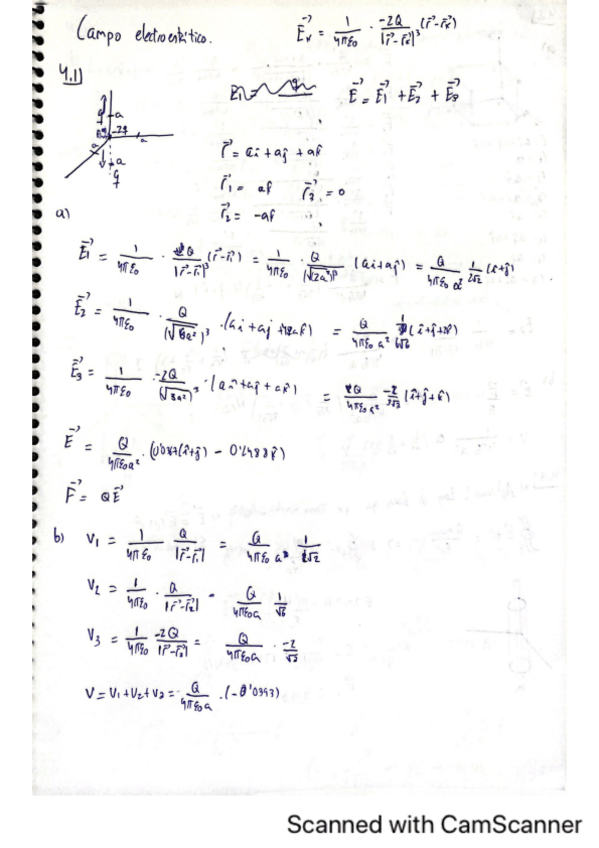 Campo electrostático.
E⃗ᵣ = 1/4πε₀ · -2Q/|r⃗-r⃗'|³ (r⃗-r⃗')
4.1)
E⃗ = E⃗₁ + E⃗₂ + E⃗₃
a
-2q
a
a
q
r⃗ = ai + aj + ak
r⃗₁ = ak r⃗₃ = 0
r⃗₂ = -ak
a)
E⃗₁ = 1/4πε₀ · Q/|r⃗-r⃗₁|³ (r⃗-r⃗₁) = 1/4πε₀ · Q/(√(2a²))³ (ai+aj) = Q/4πε₀a² 1/2√2 (i+j)
E⃗₂ = 1/4πε₀ · Q/(√6a²)³ · (ai + aj + 2ak) = Q/4πε₀a² 1/6√6 (i+j+2k)
E⃗₃ = 1/4πε₀ · -2Q/(√3a²)³ · (ai + aj + ak) = Q/4πε₀a² -2/3√3 (i+j+k)
E⃗ = Q/4πε₀a² · (0'037(i+j) - 0'2488k)
F⃗ = QE⃗
b) V₁ = 1/4πε₀ Q/|r⃗-r⃗₁| = Q/4πε₀a 1/√2
V₂ = 1/4πε₀ · Q/|r⃗-r⃗₂| = Q/4πε₀a 1/√6
V₃ = 1/4πε₀ -2Q/|r⃗-r⃗₃| = Q/4πε₀a · -2/√3
V = V₁ + V₂ + V₃ = Q/4πε₀a · (-0'0393)
Scanned with CamScanner